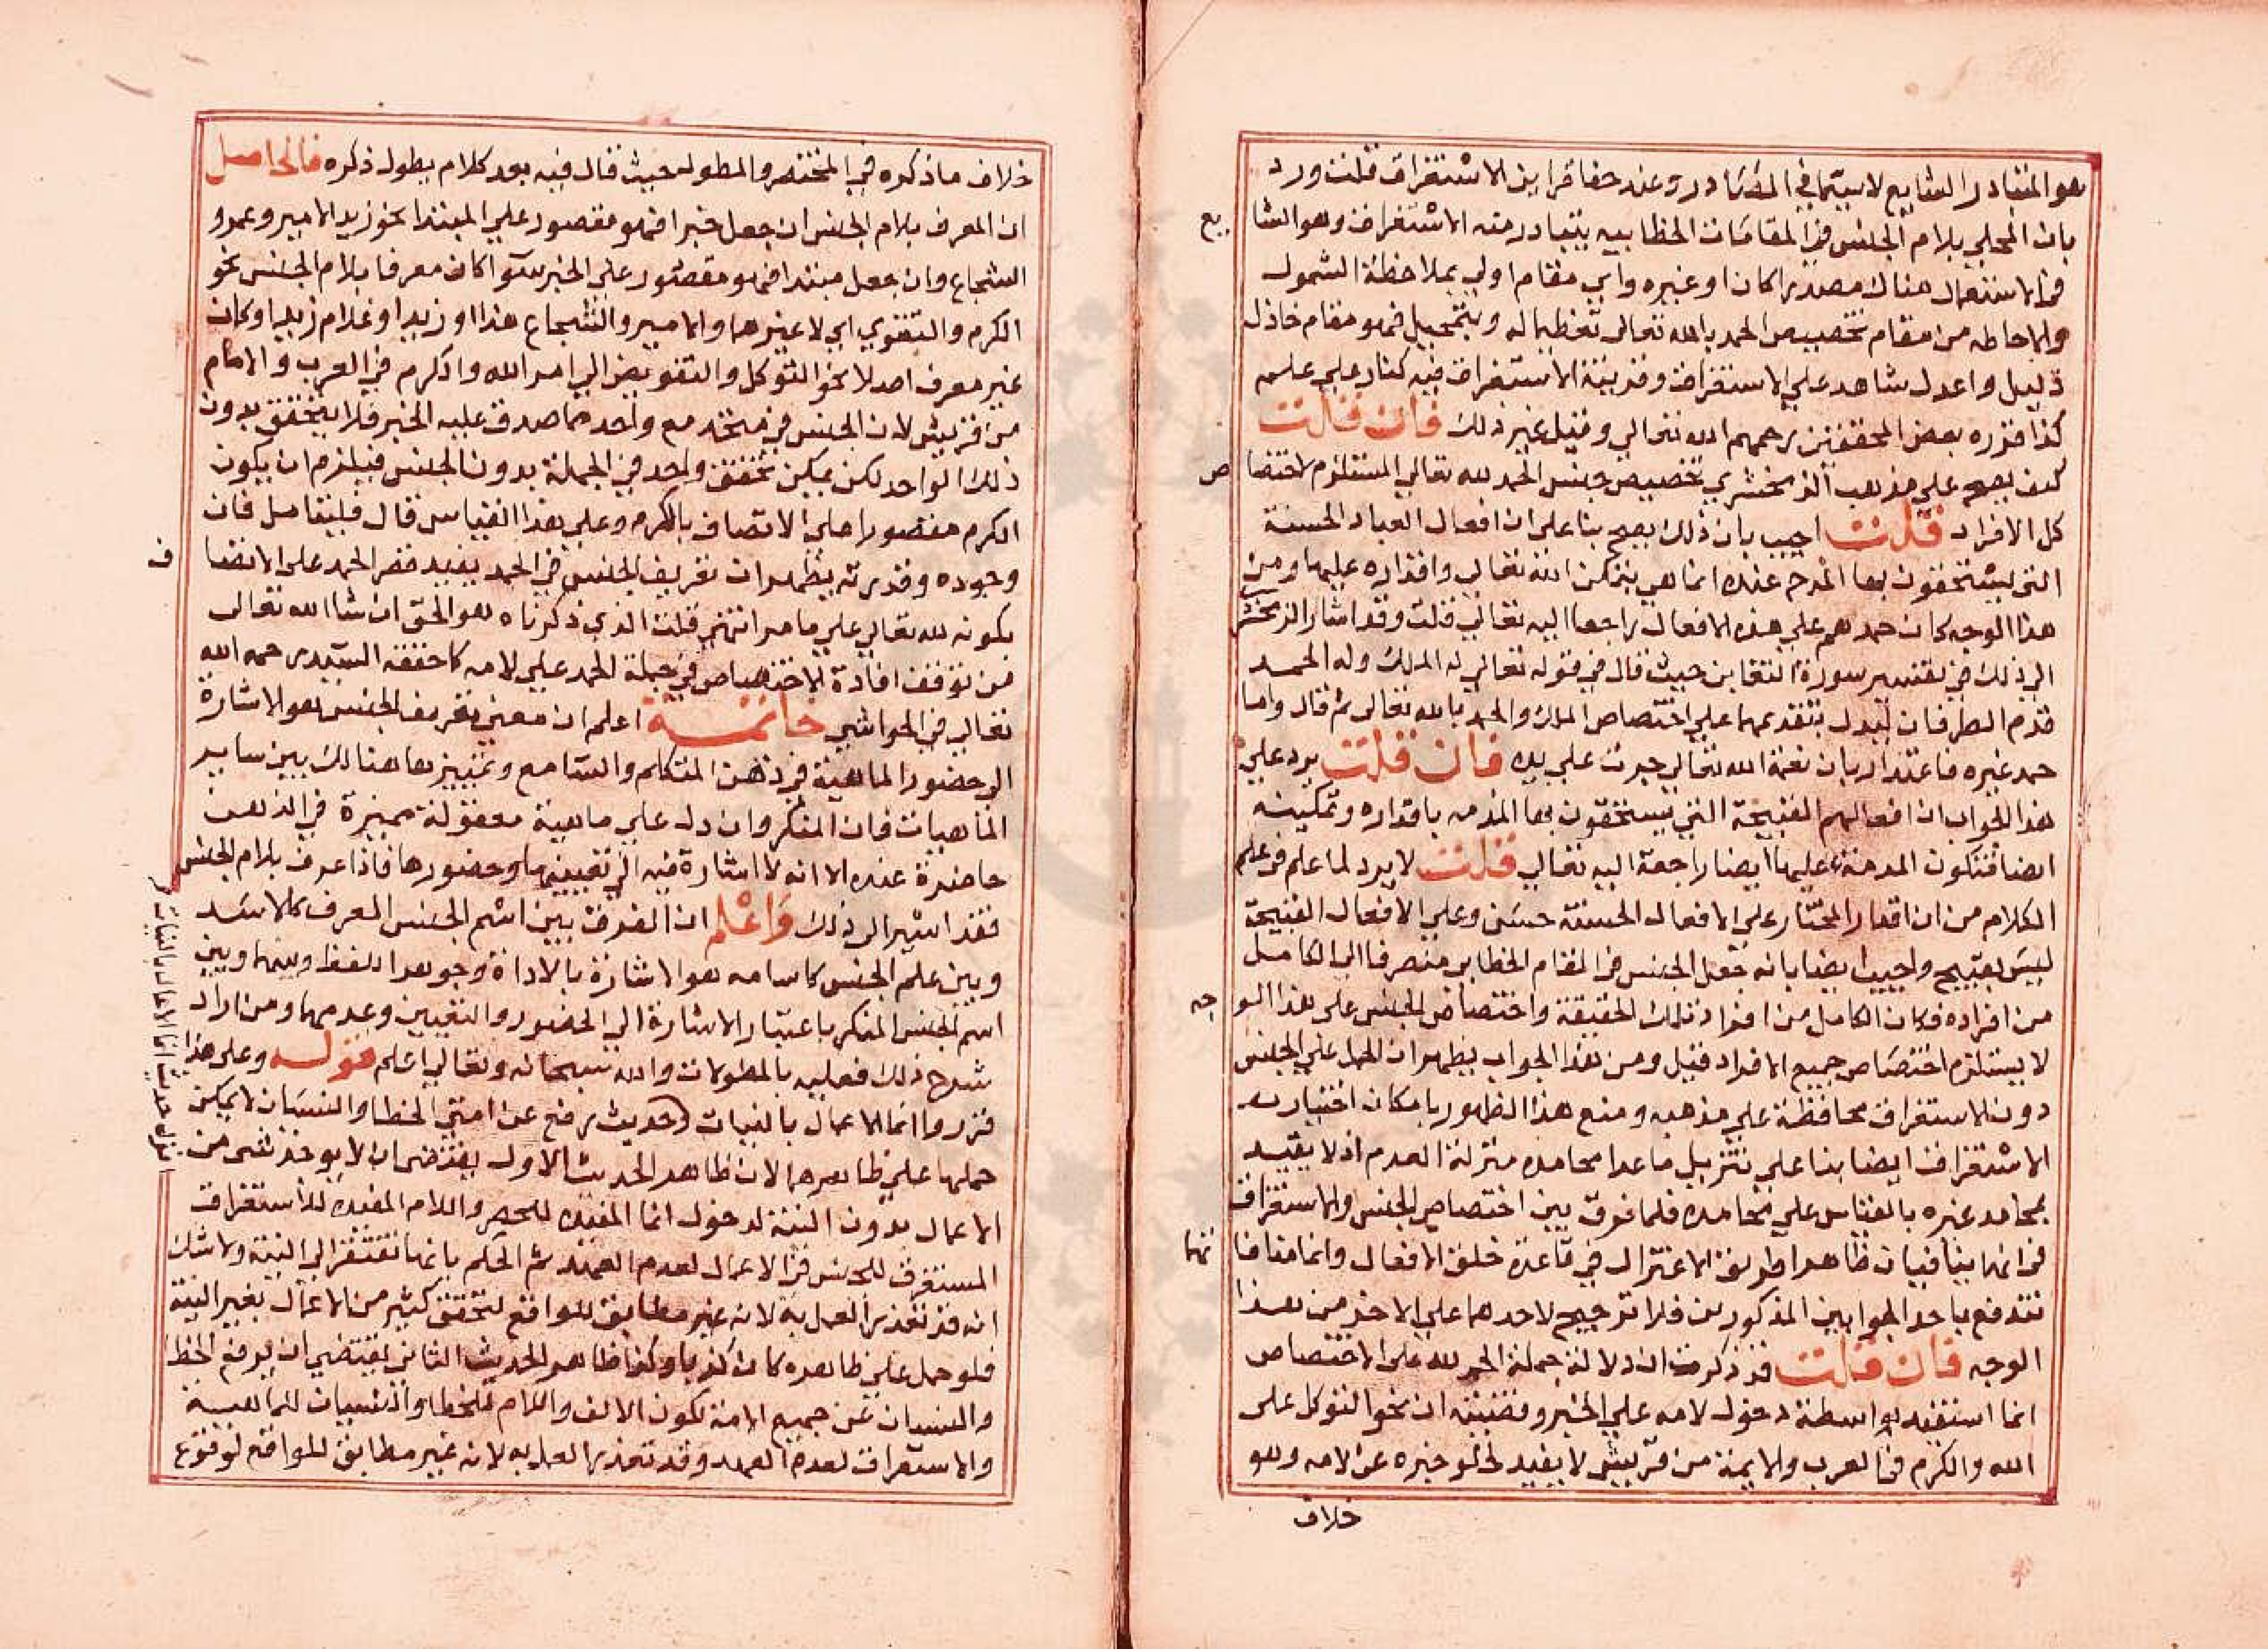 هو المتبادر الشايع لا سيما في المصادر وعند خفا قراين الاستغراق قلت ورد
بان المحلي بلام الجنس في المقامات الخطابيه يتبادر منه الاستغراق وهو الشا
يع
في الاستعمال هناك مصدرا كان او غيره واي مقام اولي بملاحظة الشمول
والاحاطه من مقام تخصيص الحمد بالله تعالي تعظيما له وتبجيل فهو مقام خاذل
دليل واعدل شاهد علي الاستغراق وقرينة الاستغراق فيه كنار علي علم
كذا قرره بعض المحققين رحمهم الله تعالي وقيل غير ذلك فان قلت
كيف يصح علي مذهب الزمخشري تخصيص جنس الحمد لله تعالي المستلزم لاختصا
ص
كل الافراد قلت اجيب بان ذلك يصح بنا علي ان افعال العباد الحسنة
التي يستحقون بها المدح عنده انما هي بتمكن الله تعالي واقداره عليها ومن
هذا الوجه كان حمدهم علي هذه الافعال راجعا اليه تعالي قلت وقد اشار الزمخشري
الي ذلك في تفسير سورة التغابن حيث قال في قوله تعالي له الملك وله الحمد
قدم الظرفان ليدل بتقدمهما علي اختصاص الملك والحمد بالله تعالي ثم قال واما
حمد غيره فاعتداد بان نعمة الله تعالي جرت علي يده فان قلت يرد علي
هذا الجواب ان افعالهم القبيحة التي يستحقون بها المذمه باقداره وتمكينه
ايضا فتكون المذمة عليها ايضا راجعة اليه تعالي قلت لا يرد لما علم في علم
الكلام من ان اقدار المختار علي الافعال الحسنة حسن وعلي الافعال القبيحة
ليس بقبيح واجيب ايضا بانه جعل الجنس في المقام الخطابي منصرفا الي الكامل
من افراده فكان الكامل من افراد تلك الحقيقة واختصاص الجنس علي هذا الو
جه
لا يستلزم اختصاص جميع الافراد قيل ومن هذا الجواب يظهر ان الحمل علي الجنس
دون الاستغراق محافظة علي مذهبه ومنع هذا الظهور بامكان اختياره
الاستغراق ايضا بنا علي تنزيل ما عدا محامده منزلة العدم اذ لا يعتد
بمحامد غيره بالقياس علي محامده فلا فرق بين اختصاص الجنس والاستغراق
في انهما ينافيان ظاهرا طريق الاعتزال في قاعدة خلق الافعال وانما منافا
تهما
تندفع باحد الجوابين المذكورين فلا ترجيح لاحدهما علي الاخر من هذا
الوجه فان قلت قد ذكرت ان دلالة جملة الحمد لله علي الاختصاص
انما استفيد بواسطة دخول لامه علي الخبر وقضيته ان نحو التوكل علي
الله والكرم في العرب والايمة من قريش لا يفيد لخلو خبره عن لامه وهو
خلاف
خلاف ما ذكره في المختصر والمطول حيث قال فيه بعد كلام يطول ذكره فالحاصل
ان المعرف بلام الجنس ان جعل خبرا فهو مقصور علي المبتدا نحو زيد الامير وعمرو
الشجاع وان جعل مبتدا فهو مقصور علي الخبر سوا كان معرفا بلام الجنس نحو
الكرم والتقوي اي لا غيرها والامير والشجاع هذا او زيد او غلام زيد او كان
غير معرف اصلا نحو التوكل والتفويض الي امر الله والكرم في العرب والامام
من قريش لان الجنس في متحد مع واحد مما صدق عليه الخبر فلا يتحقق بدون
ذلك الواحد لكن يمكن تحقق واحد في الجملة بدون الجنس فيلزم ان يكون
الكرم مقصورا علي الاتصاف بالكرم وعلي هذا القياس قال فليتامل فان
وجوده وقد يظهر ان تعريف الجنس في الحمد يفيد قصر الحمد علي الاتصا
ف
بكونه لله تعالي علي ما مر انتهي قلت الذي ذكرناه هو الحق ان شا الله تعالي
من توقف افادة الاختصاص في جملة الحمد علي لامه كما حققه السيد رحمه الله
تعالي في الحواشي خاتمة اعلم ان معني تعريف الجنس هو الاشارة
الي حضور الماهية في ذهن المتكلم والسامع وتمييزها هنالك بين ساير
الماهيات فان المنكر وان دل علي ماهية معقولة مميزة في الذهن
حاضرة عنده الا انه لا اشارة فيه الي تعيينها وحضورها فاذا عرف بلام الجنس
فقد اشير الي ذلك واعلم ان الفرق بين اسم الجنس المعرف كالاسد
وبين علم الجنس كاسامه هو الاشارة بالاداة وجوهر اللفظ وبينهما وبين
اسم الجنس المنكر باعتبار الاشارة الي الحضور والتعيين وعدمهما ومن اراد
شرح ذلك فعليه بالمطولات والله سبحانه وتعالي اعلم قوله وعلي هذا
قرروا انما الاعمال بالنيات وحديث رفع عن امتي الخطا والنسيان لا يمكن
حملها علي ظاهرهما لان ظاهر الحديث الاول يقتضي ان لا يوجد شي من
الاعمال بدون النية لدخول انما المفيده للحصر واللام المفيده للاستغراق
المستغرق للجنس في الاعمال لعدم العهد ثم الحكم بانها تفتقر الي النية ولا شك
انه قد تعذر العمل به لانه غير مطابق للواقع لتحقق كثير من الاعمال بغير النية
فلو حمل علي ظاهره كان كذبا وكذا ظاهر الحديث الثاني يقتضي ان يرفع الخطا
والنسيان عن جميع الامة لكون الالف واللام للخطا والنسيان للماهية
والاستغراق لعدم العهد وقد تعذر العمل به لانه غير مطابق للواقع لوقوع